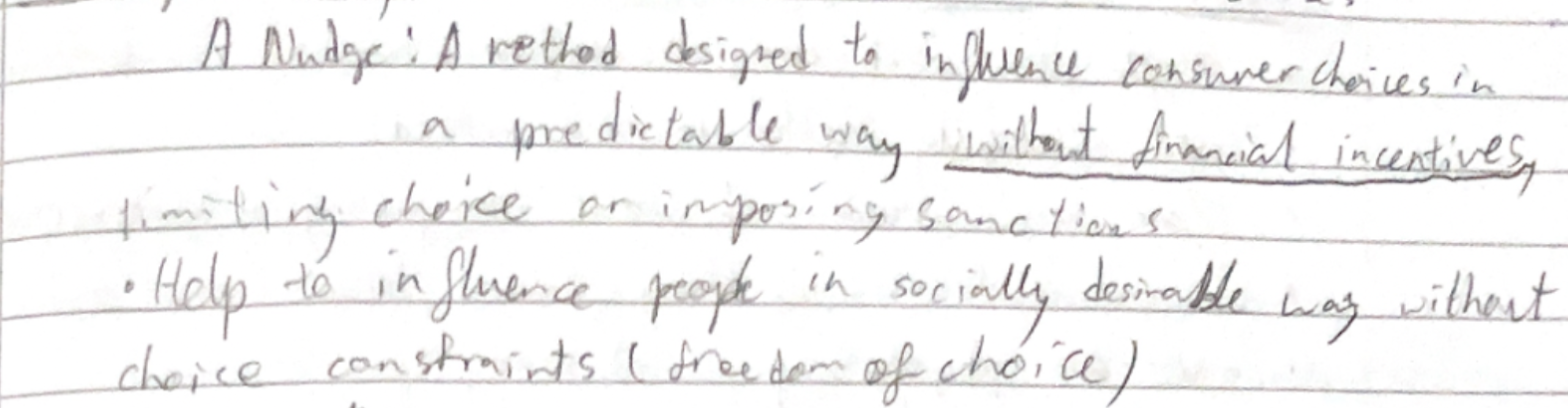 A Nudge: A method designed to influence consumer choices in
a predictable way without financial incentives,
limiting choice or imposing sanctions
• Help to influence people in socially desirable way without
choice constraints (freedom of choice)